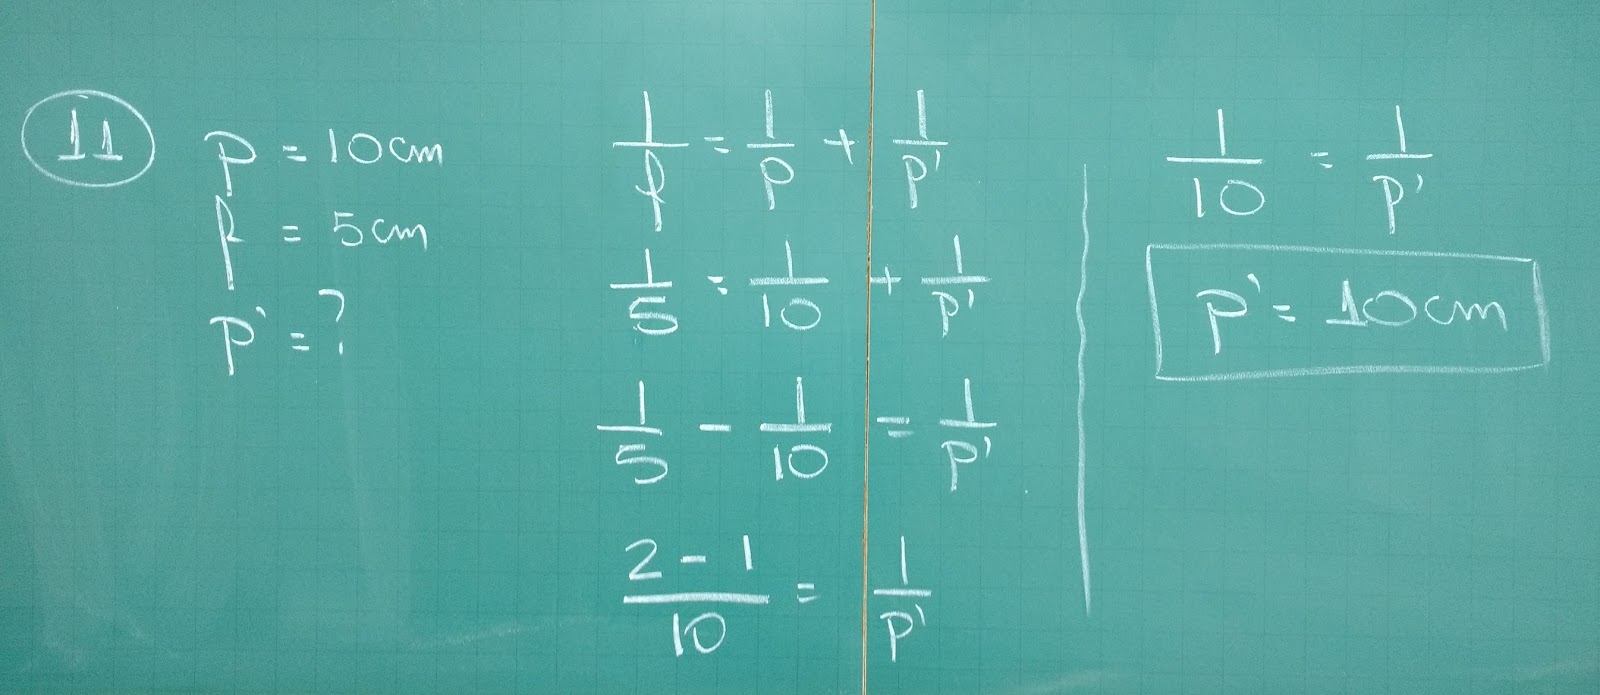 11
p = 10cm
f = 5cm
p' = ?
1/f = 1/p + 1/p'
1/5 = 1/10 + 1/p'
1/5 - 1/10 = 1/p'
2 - 1/10 = 1/p'
1/10 = 1/p'
p' = 10cm